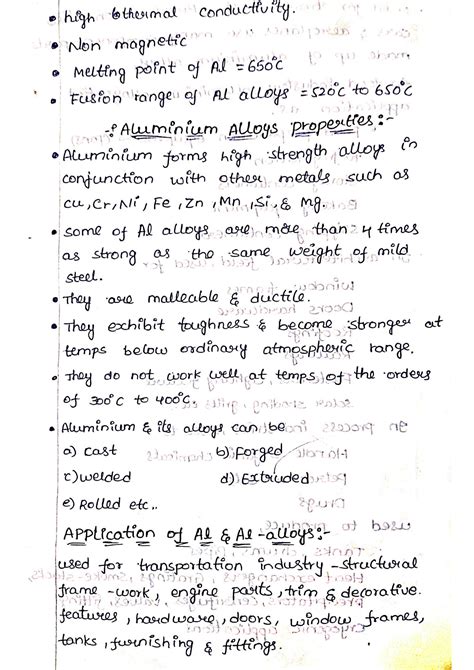 • high thermal conductivity.
• Non magnetic
• Melting point of Al = 650°C
• Fusion range of Al alloys = 520°C to 650°C
-: Aluminium Alloys Properties :-
• Aluminium forms high strength alloys in
conjunction with other metals such as
Cu, Cr, Ni, Fe, Zn, Mn, Si, & Mg.
• some of Al alloys are more than 4 times
as strong as the same weight of mild
steel.
• They are malleable & ductile.
• They exhibit toughness & become stronger at
temps below ordinary atmospheric range.
• They do not work well at temps of the orders
of 300°C to 400°C.
• Aluminium & its alloys can be
a) cast b) Forged
c) welded d) Extruded
e) Rolled etc..
Application of Al & Al-alloys:-
used for transportation industry - structural
frame-work, engine parts, trim & decorative
features, hardware, doors, window frames,
tanks, furnishing & fittings.